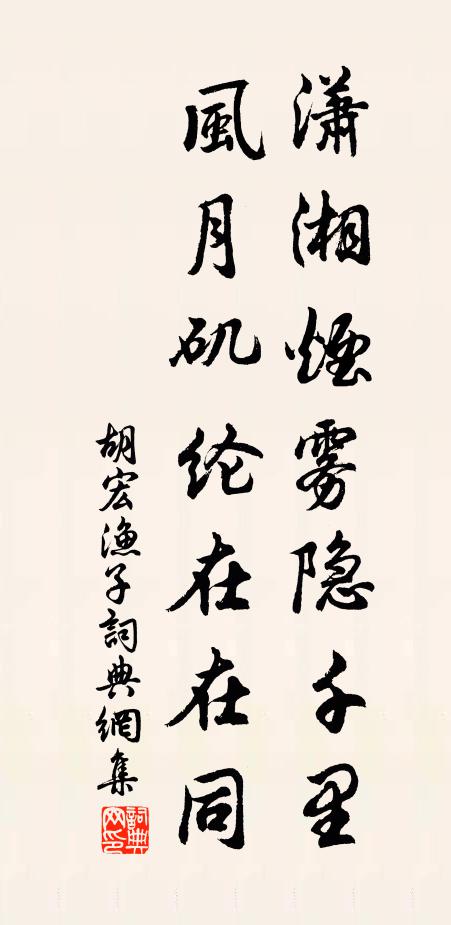 瀟湘煙雾隐千里
風月矶纶在在同
胡宏漁子詞典網集
詞典網印